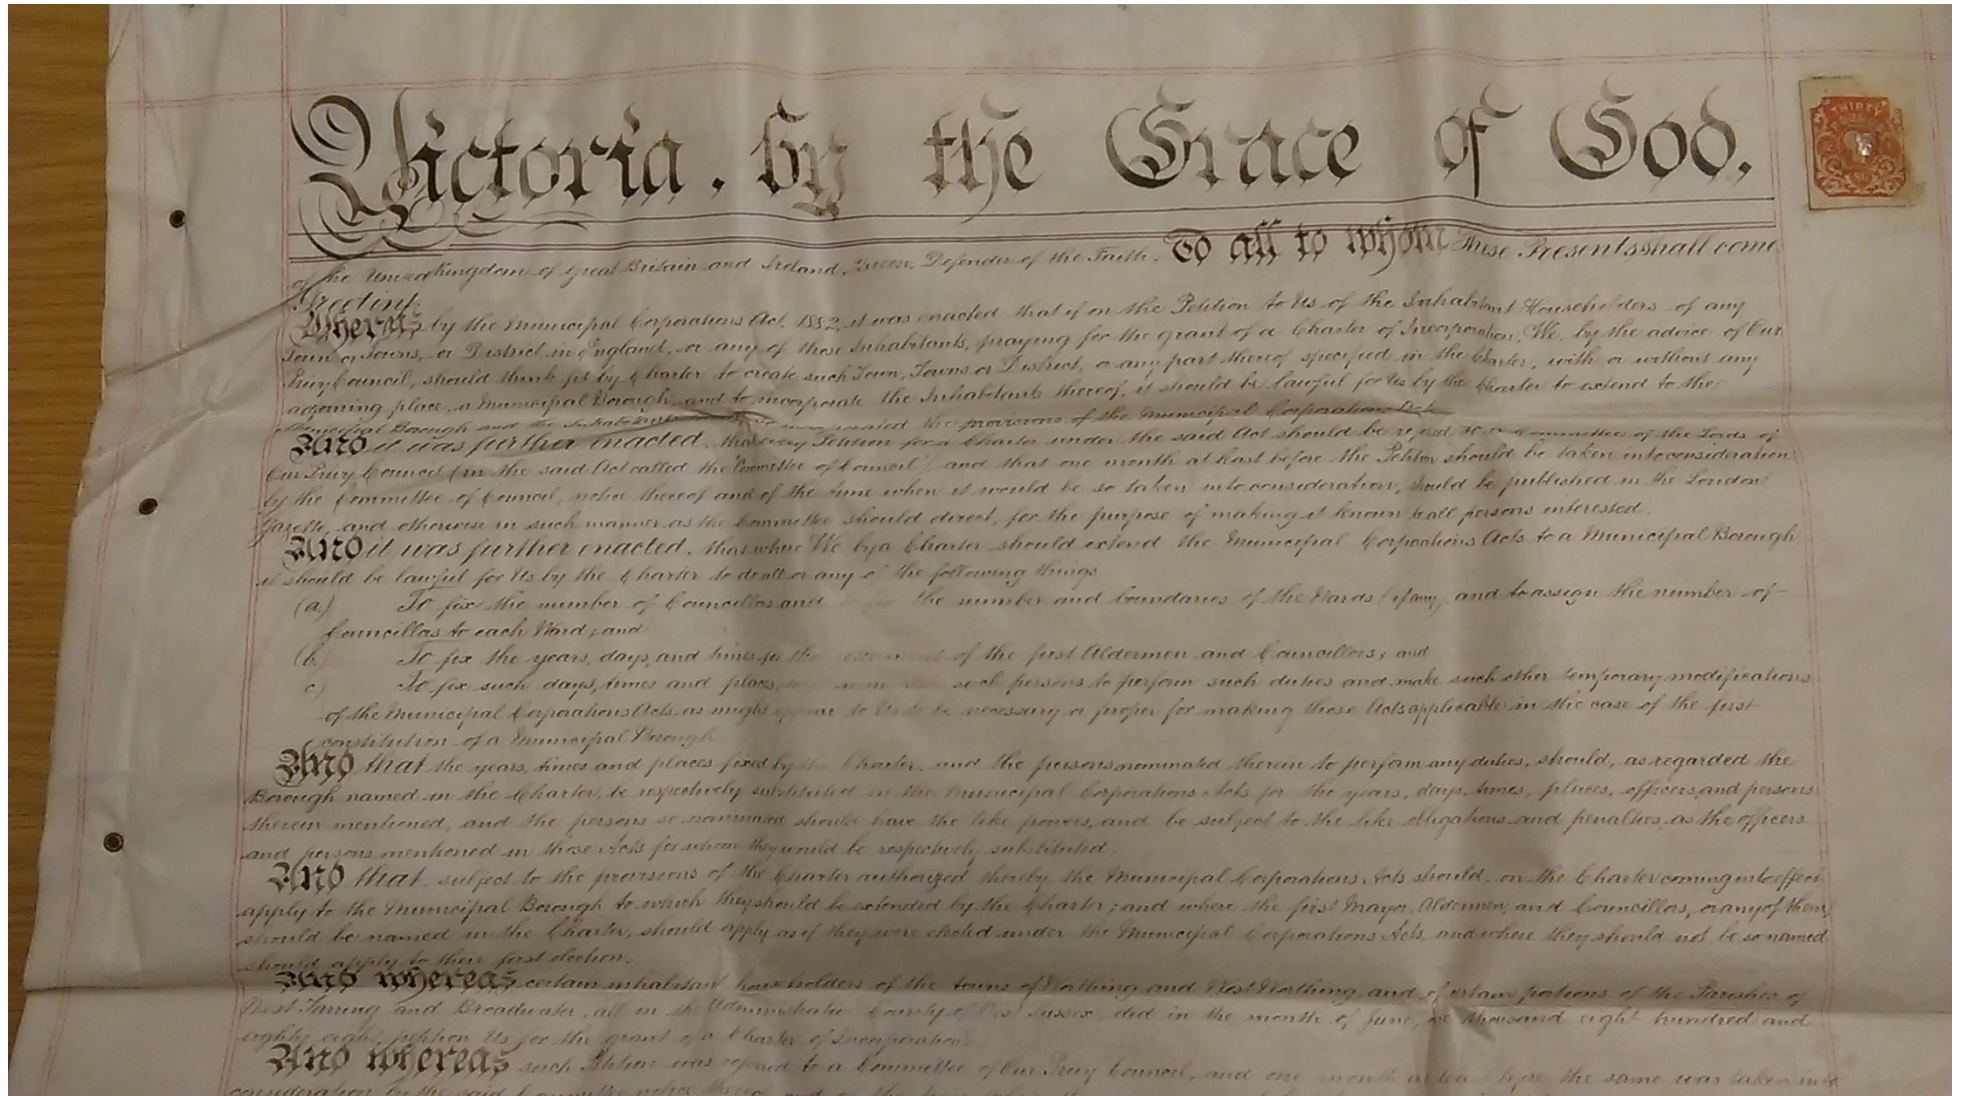 Victoria. by the Grace of God.
THIRTY
of the United Kingdom of Great Britain and Ireland, Queen, Defender of the Faith. To all to whom these Presents shall come
Greeting.
Whereas by the Municipal Corporations Act, 1882, it was enacted that if on the Petition to Us of the Inhabitant Householders of any
Town or Towns, or District in England, or any of those Inhabitants, praying for the grant of a Charter of Incorporation, We, by the advice of Our
Privy Council, should think fit by Charter to create such Town, Towns or District, or any part thereof specified in the Charter, with or without any
adjoining place, a Municipal Borough, and to incorporate the Inhabitants thereof, it should be lawful for Us by the Charter to extend to the
Municipal Borough and the Inhabitants thereof so incorporated the provisions of the Municipal Corporations Act.
And it was further enacted, that every Petition for a Charter under the said Act should be referred to a Committee of the Lords of
Our Privy Council (in the said Act called the "Committee of Council") and that one month at least before the Petition should be taken into consideration
by the Committee of Council, notice thereof and of the time when it would be so taken into consideration, should be published in the London
Gazette, and otherwise in such manner as the Committee should direct, for the purpose of making it known to all persons interested.
And it was further enacted, that where We by a Charter should extend the Municipal Corporations Acts to a Municipal Borough
it should be lawful for Us by the Charter to do all or any of the following things
(a) To fix the number of Councillors and to fix the number and boundaries of the Wards (if any), and to assign the number of
Councillors to each Ward; and
(b) To fix the years, days, and times for the retirement of the first Aldermen and Councillors; and
(c) To fix such days, times and places, and such persons to perform such duties and make such other temporary modifications
of the Municipal Corporations Acts as might appear to Us to be necessary or proper for making those Acts applicable in the case of the first
constitution of a Municipal Borough.
And that the years, times and places fixed by the Charter, and the persons nominated therein to perform any duties, should, as regarded the
Borough named in the Charter, be respectively substituted in the Municipal Corporations Acts for the years, days, times, places, officers, and persons
therein mentioned, and the persons so nominated should have the like powers, and be subject to the like obligations and penalties, as the officers
and persons mentioned in those Acts for whom they would be respectively substituted.
And that subject to the provisions of the Charter authorized thereby, the Municipal Corporations Acts should, on the Charter coming into effect
apply to the Municipal Borough to which they should be extended by the Charter; and where the first Mayor, Aldermen, and Councillors, or any of them,
should be named in the Charter, should apply as if they were elected under the Municipal Corporations Acts, and where they should not be so named
should apply to their first election.
And whereas certain inhabitant householders of the towns of Worthing and West Worthing, and of certain portions of the Parishes of
West Tarring and Broadwater, all in the Administrative County of West Sussex, did in the month of June, one thousand eight hundred and
eighty eight petition Us for the grant of a Charter of Incorporation
And whereas such Petition was referred to a Committee of Our Privy Council, and one month at least before the same was taken into
consideration by the said Committee notice thereof and of the time when